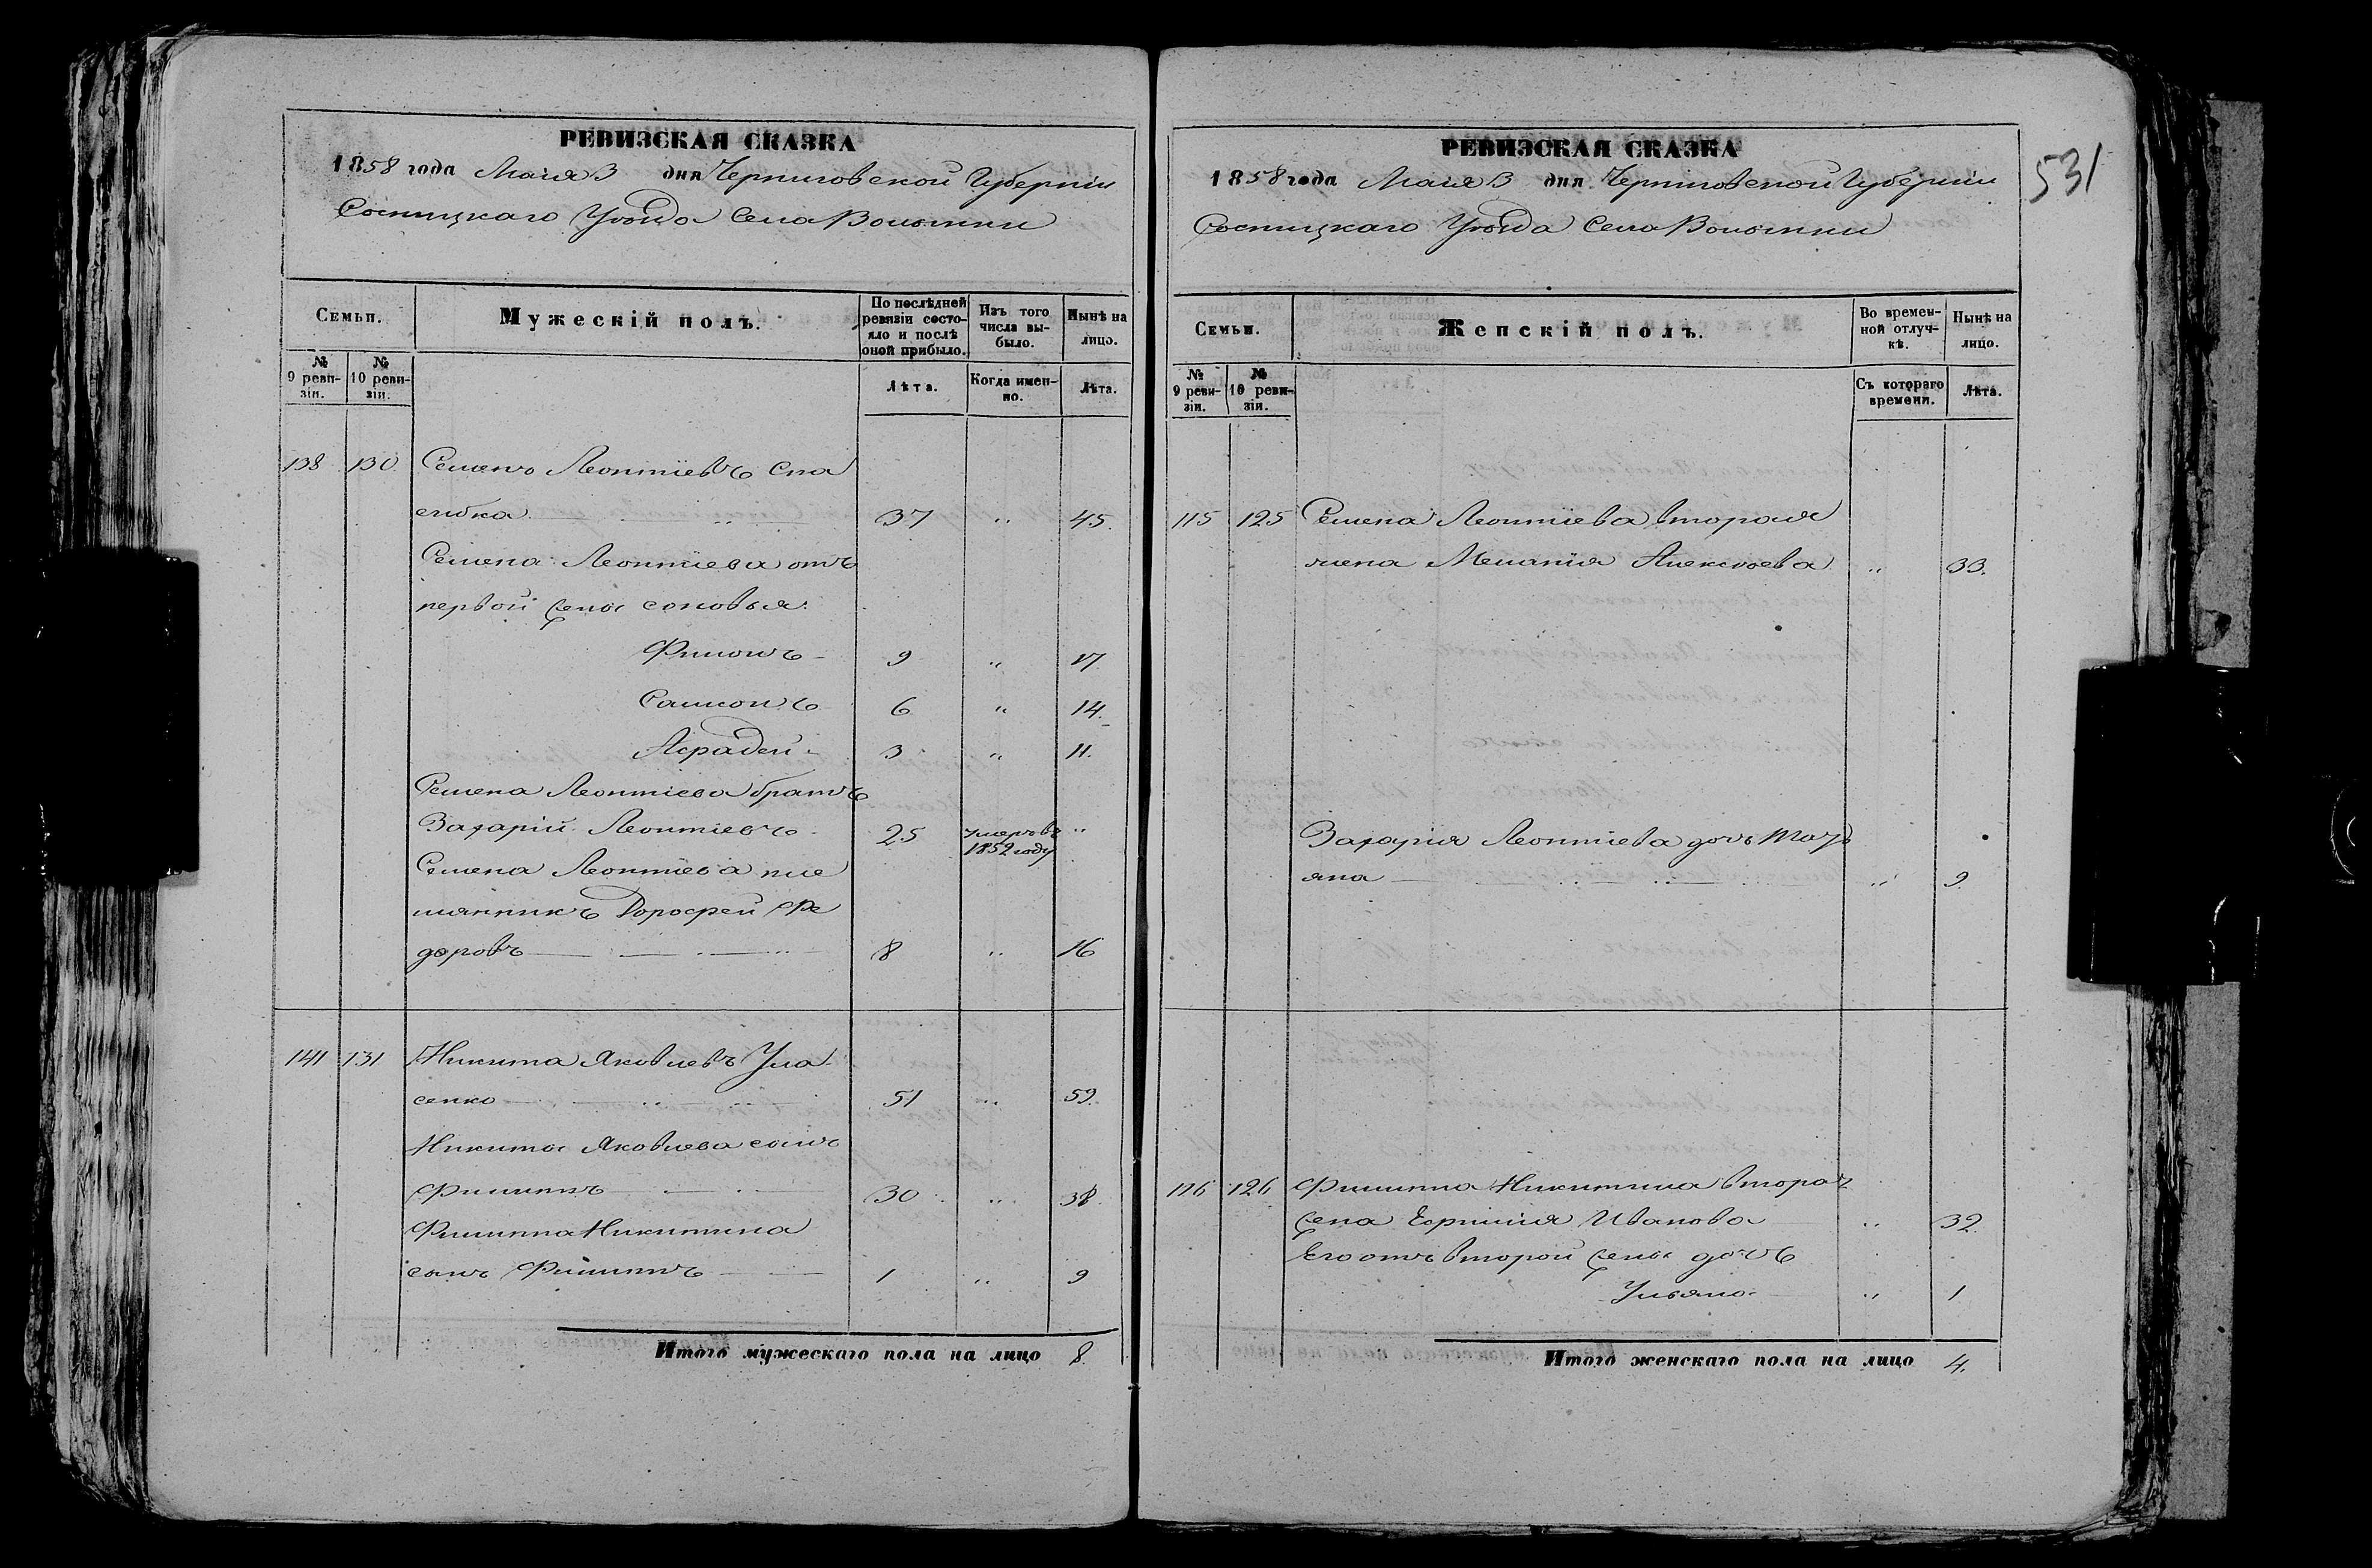 РЕВИЗСКАЯ СКАЗКА
1858 года Мая 3 дня Черниговской Губерніи
Сосницкаго Уѣзда Села Волынки
Семьи.
Мужескій полъ.
По послѣдней ревизіи состо-
яло и послѣ
оной прибыло.
Изъ того
числа вы-
было.
Нынѣ на
лицо.
№ 9 реви-
зіи.
№ 10 реви-
зіи.
Лѣта.
Когда имен-
но.
Лѣта.
138 130 Семенъ Леонтіевъ Спа
сибка 37 " 45.
Семена Леонтіева отъ
первой жены сыновья:
Филонъ 9 " 17
Самсонъ 6 " 14.
Асфадей 3 " 11.
Семена Леонтіева братъ
Захарій Леонтіевъ 25 умеръ въ 1852 году "
Семена Леонтіева пле
мянникъ Дорофей Фе
доровъ 8 " 16
141 131 Никита Яковлевъ Ула
сенко 51 " 59.
Никиты Яковлева сынъ
Филиппъ 30 " 38
Филиппа Никитина
сынъ Филиппъ 1 " 9
Итого мужескаго пола на лицо 8.
РЕВИЗСКАЯ СКАЗКА
531
1858 года Мая 3 дня Черниговской Губерніи
Сосницкаго Уѣзда Села Волынки
Семьи.
Женскій полъ.
Во времен-
ной отлуч-
кѣ.
Нынѣ на
лицо.
№ 9 реви-
зіи.
№ 10 реви-
зіи.
Съ котораго
времени.
Лѣта.
115 125 Семена Леонтіева вторая
жена Меланія Алексѣева " 33.
Захарія Леонтіева дочь Марь
яна " 9
126 Филиппа Никитина вторая
жена Евфимія Иванова " 32
Его отъ второй жены дочь
Ульяна 1
Итого женскаго пола на лицо 4.